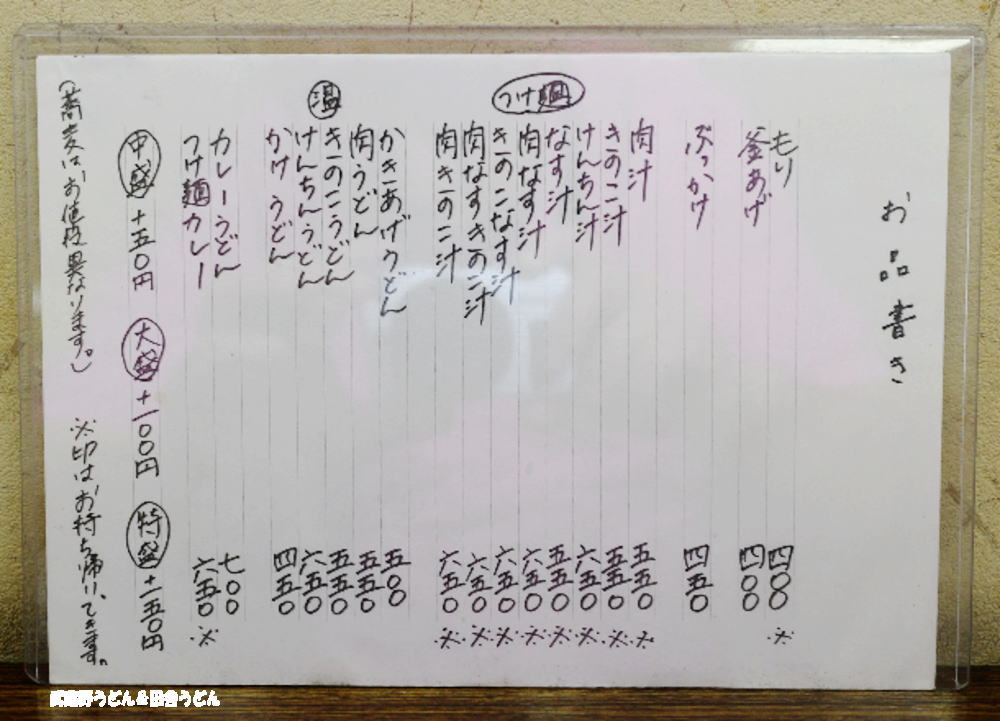 お品書き
もり 四〇〇 ※
釜あげ 四〇〇
ぶっかけ 四五〇
つけ麺
肉汁 五五〇 ※
きのこ汁 五五〇 ※
けんちん汁 六五〇 ※
なす汁 五五〇 ※
肉なす汁 六五〇 ※
きのこなす汁 六五〇 ※
肉なすきのこ汁 六五〇 ※
肉きのこ汁 六五〇 ※
温
かきあげうどん 五〇〇
肉うどん 五五〇
きのこうどん 五五〇
けんちんうどん 六五〇
かけうどん 四五〇
カレーうどん 七〇〇
つけ麺カレー 六五〇 ※
中盛 +五〇円 大盛 +一〇〇円 特盛 +二五〇円
(蕎麦はお値段異なります。) ※印はお持ち帰り、できます。
武蔵野うどん&田舎うどん